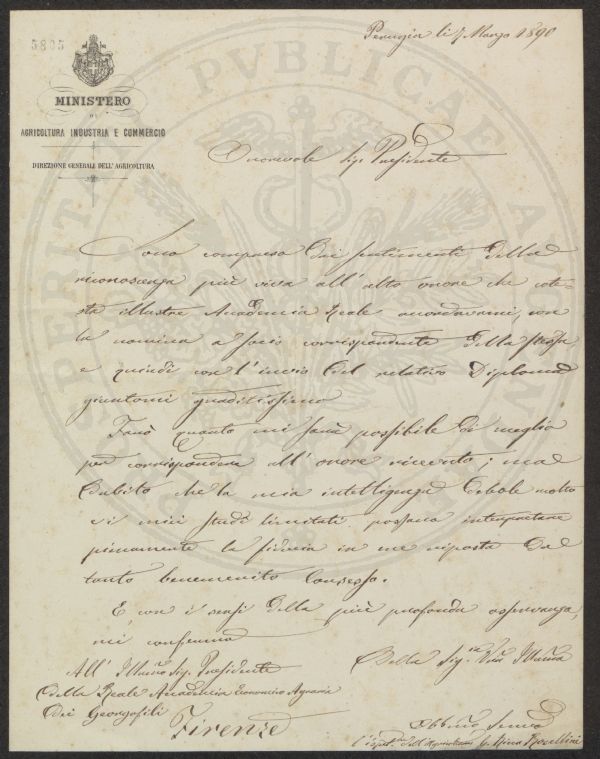 5805
Perugia li 7 Marzo 1890
MINISTERO
DI
AGRICOLTURA INDUSTRIA E COMMERCIO
DIREZIONE GENERALE DELL'AGRICOLTURA
Onorevole Sig. Presidente
Sono compreso dai sentimenti della
riconoscenza più viva all'alto onore che cote-
sta illustre Accademia Reale accordavami con
la nomina a socio corrispondente della stessa
e quindi con l'invio del relativo Diploma
giuntomi graditissimo
Farò quanto mi sarà possibile di meglio
per corrispondere all'onore ricevuto; ma
dubito che la mia intelligenza debole molto
ei miei studi limitati possano interpretare
pienamente la fiducia in me riposta da
tanto benemerito Consesso.
E con i sensi della più profonda osservanza,
mi confermo
Della Sig.ria Vra Illma
All' Illmo Sig. Presidente
della Reale Accademia Economico Agraria
dei Georgofili
Firenze
Obbmo Servo